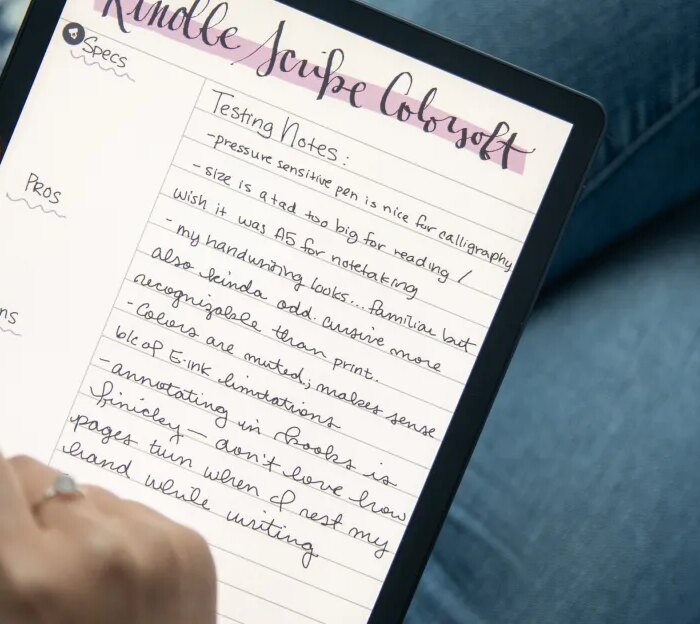 Kindle Scribe Colorsoft
Specs
Pros
ns
Testing Notes:
-pressure sensitive pen is nice for calligraphy
- size is a tad too big for reading /
wish it was A5 for notetaking
- my handwriting looks... familiar but
also kinda odd. cursive more
recognizable than print.
- Colors are muted; makes sense
b/c of E-ink limitations
- annotating in books is
finicky — don't love how
pages turn when I rest my
hand while writing